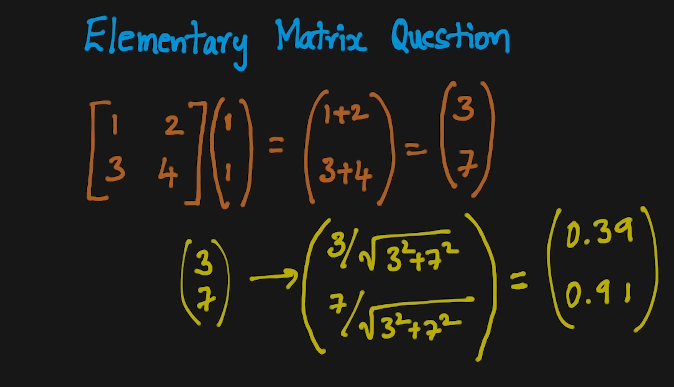 Elementary Matrix Question
[1 2; 3 4] (1; 1) = (1+2; 3+4) = (3; 7)
(3; 7) → (3/√3²+7²; 7/√3²+7²) = (0.39; 0.91)